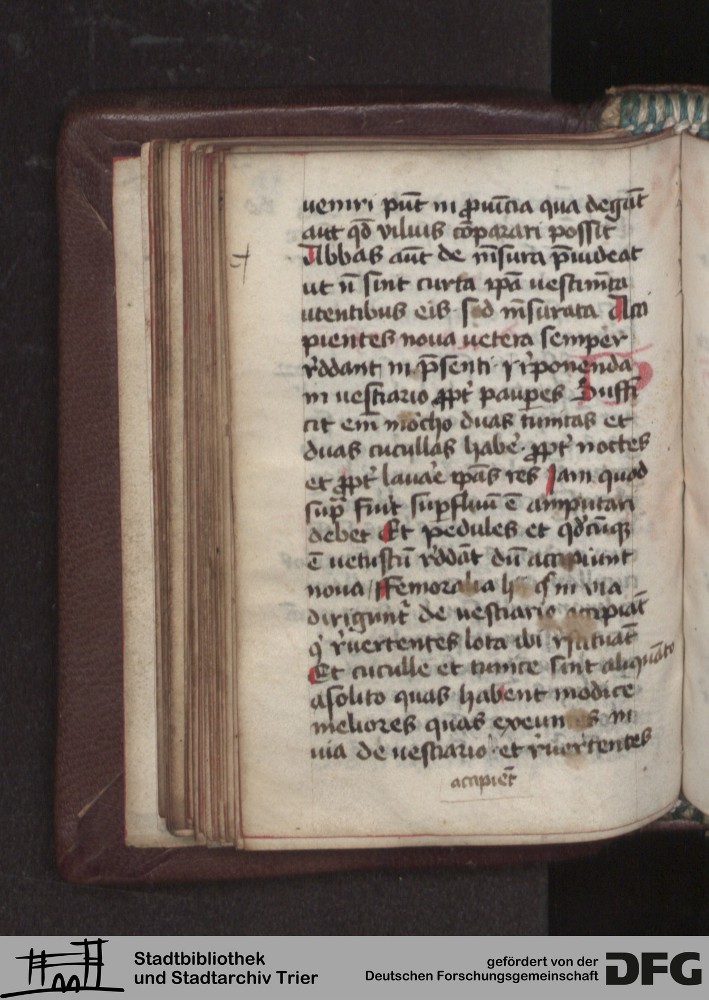 ueniri pūt in ꝓuīcia qua degūt
aut qd̄ viliuꝰ cōparari possit
Abbas aūt de mēsura p̄uideat
ut n̄ sint curta ipā uestimēta
utentibus eis sed mēsurata Acci
pientes noua uetera semper
r̄ddant in p̄senti ⁊ r̄ponenda
in uestiario ꝓpt̄ pauꝑes Suffi
cit em̄ mōcho duas tunicas et
duas cucullas habē ꝓpt̄ noctes
et ꝓpt̄ lauāe ipās res Jam quod
sup̄ fuīt suꝑfluū ē amputari
debet Et pedules et qd̄cūqꝫ
ē uetustū r̄ddāt dū accipiunt
noua Femoralia hii q̄ in via
dirigunt̄ de uestiario accipiāt
q̄ r̄uertentes lota ibi r̄stituāt
Et cuculle et tunice sint aliquāto
asolito quas habent modice
meliores quas exeuntes in
uia de uestiario et r̄uertentes
accipiēt
Stadtbibliothek
und Stadtarchiv Trier
gefördert von der
Deutschen Forschungsgemeinschaft
DFG